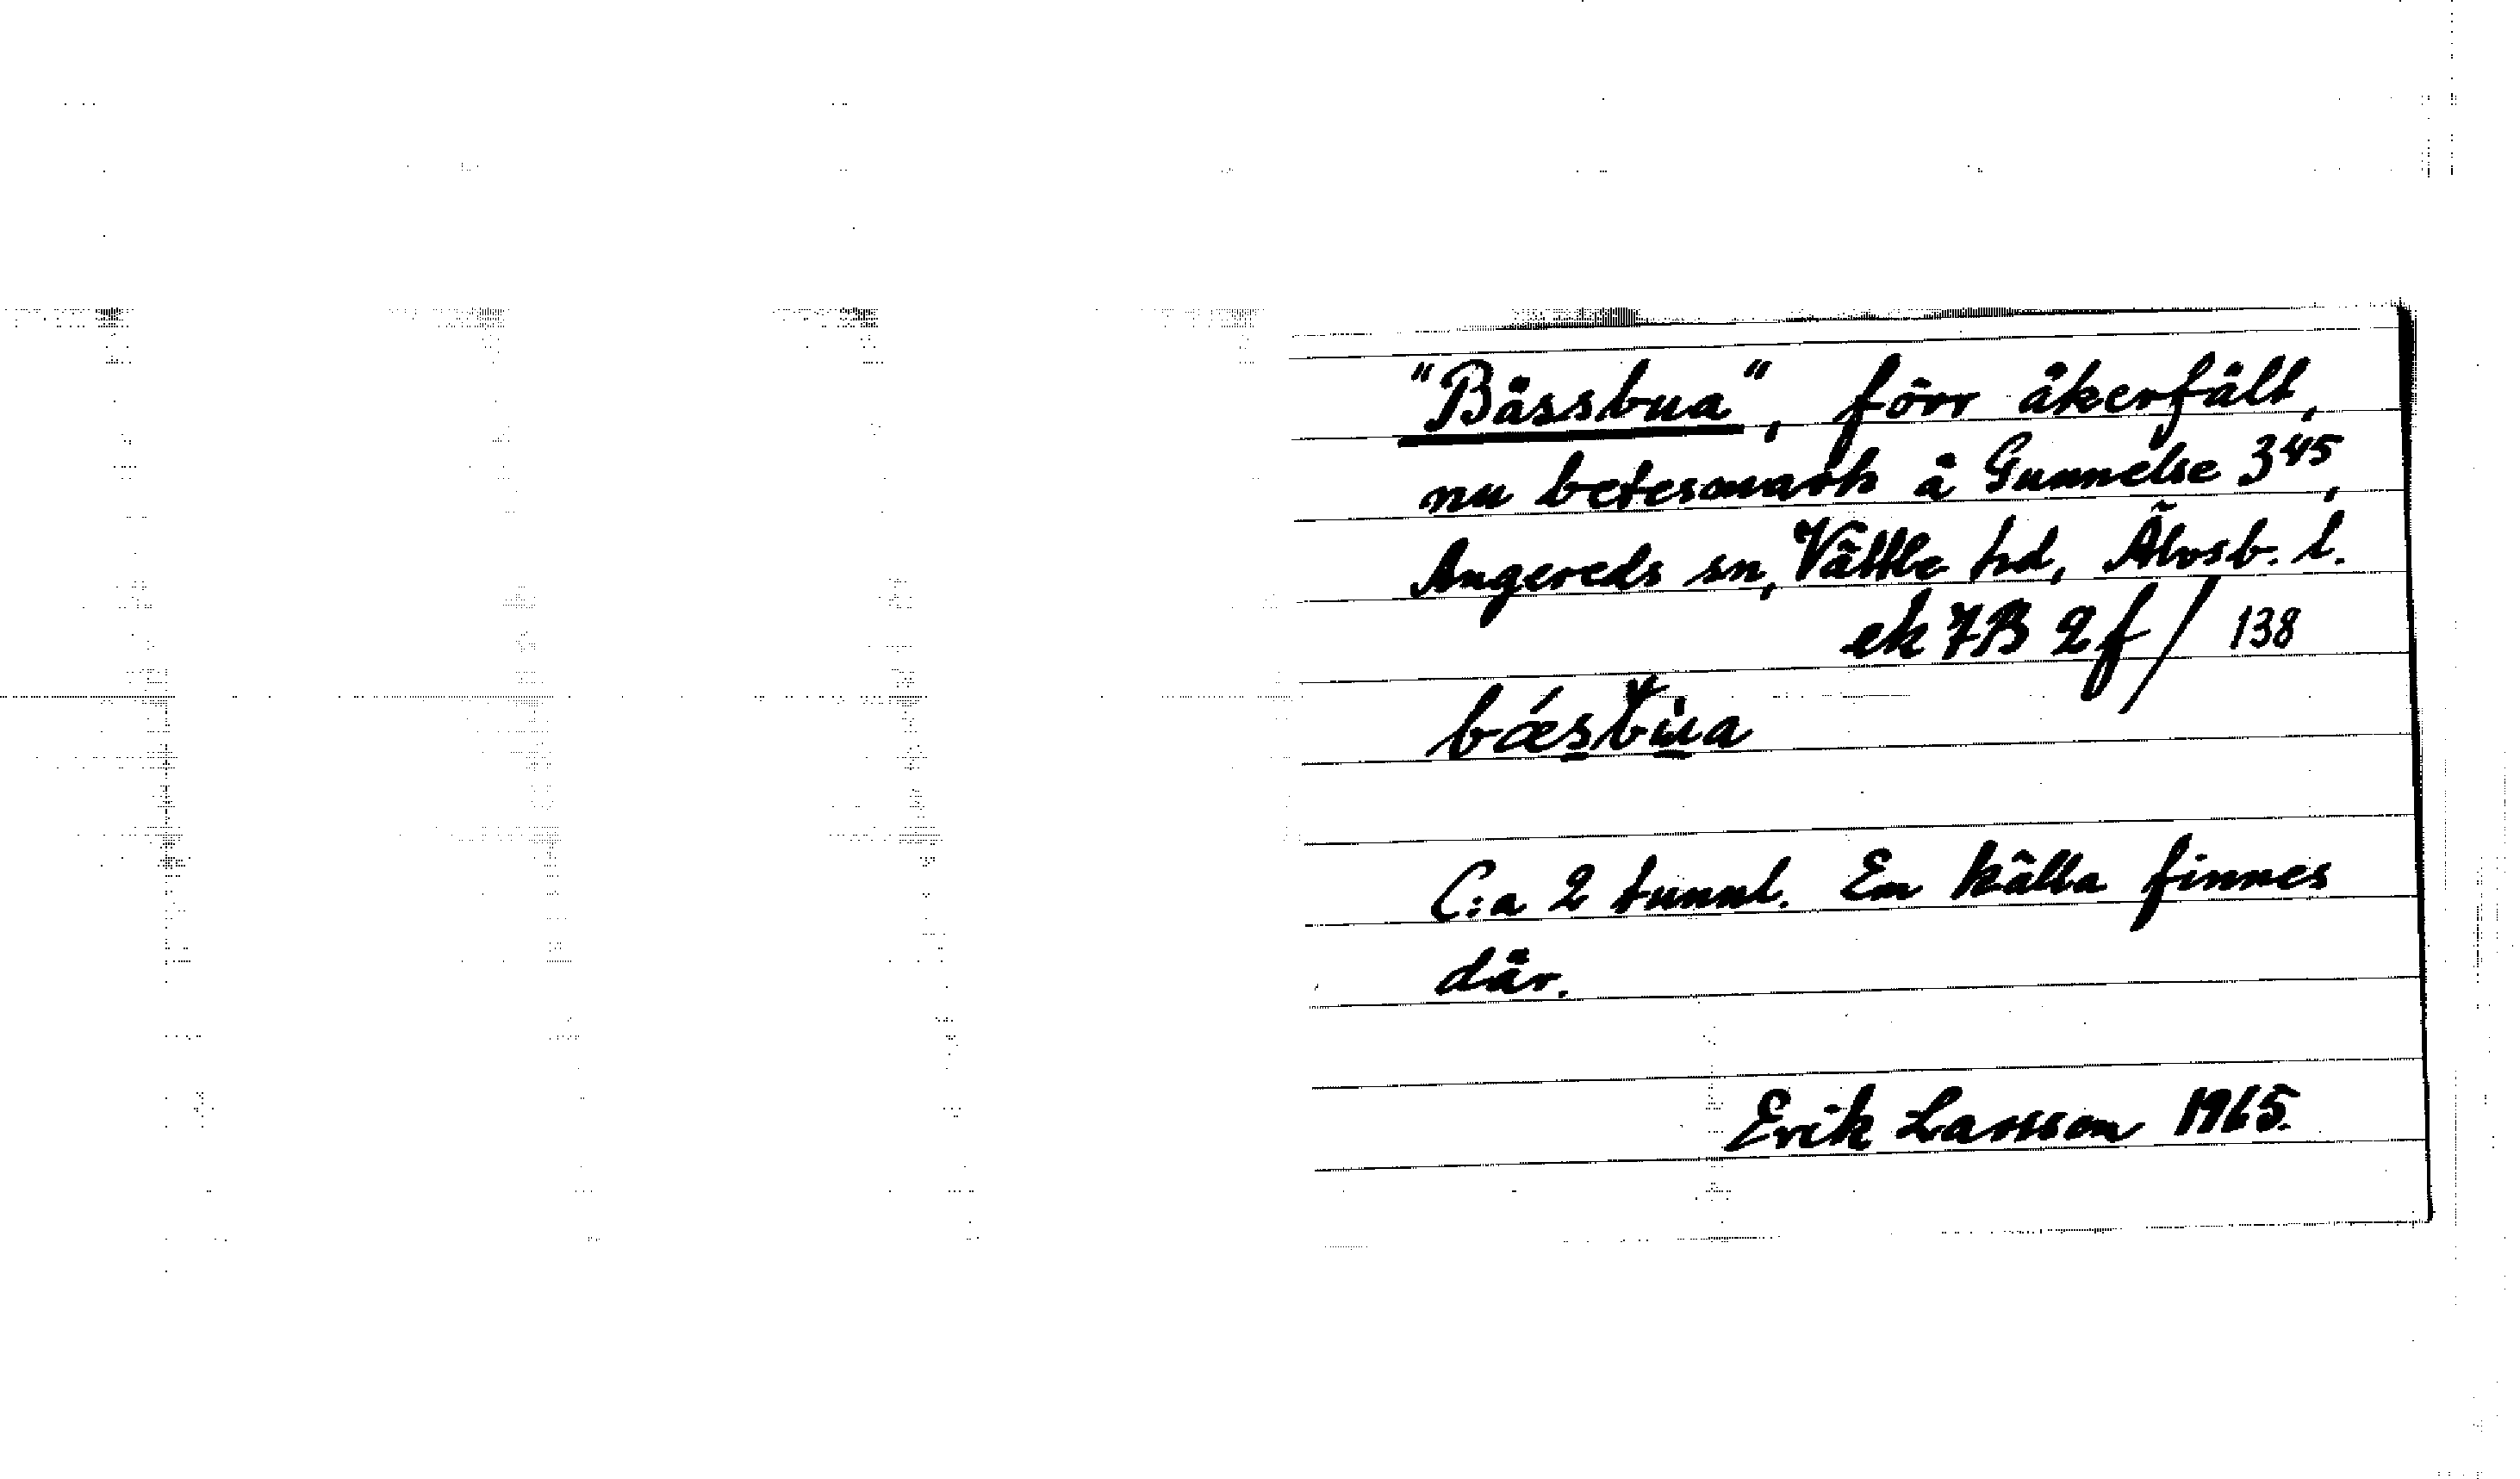 "Bässbua", förr åkerfält,
nu betesmark å Gunnelse 3⁴⁵,
Angereds sn, Vättle hd, Älvsb. l.
ek 7B 2f / 138
bǽsbua
C:a 2 tunnl. En källa finnes
där.
Erik Larsson 1965.